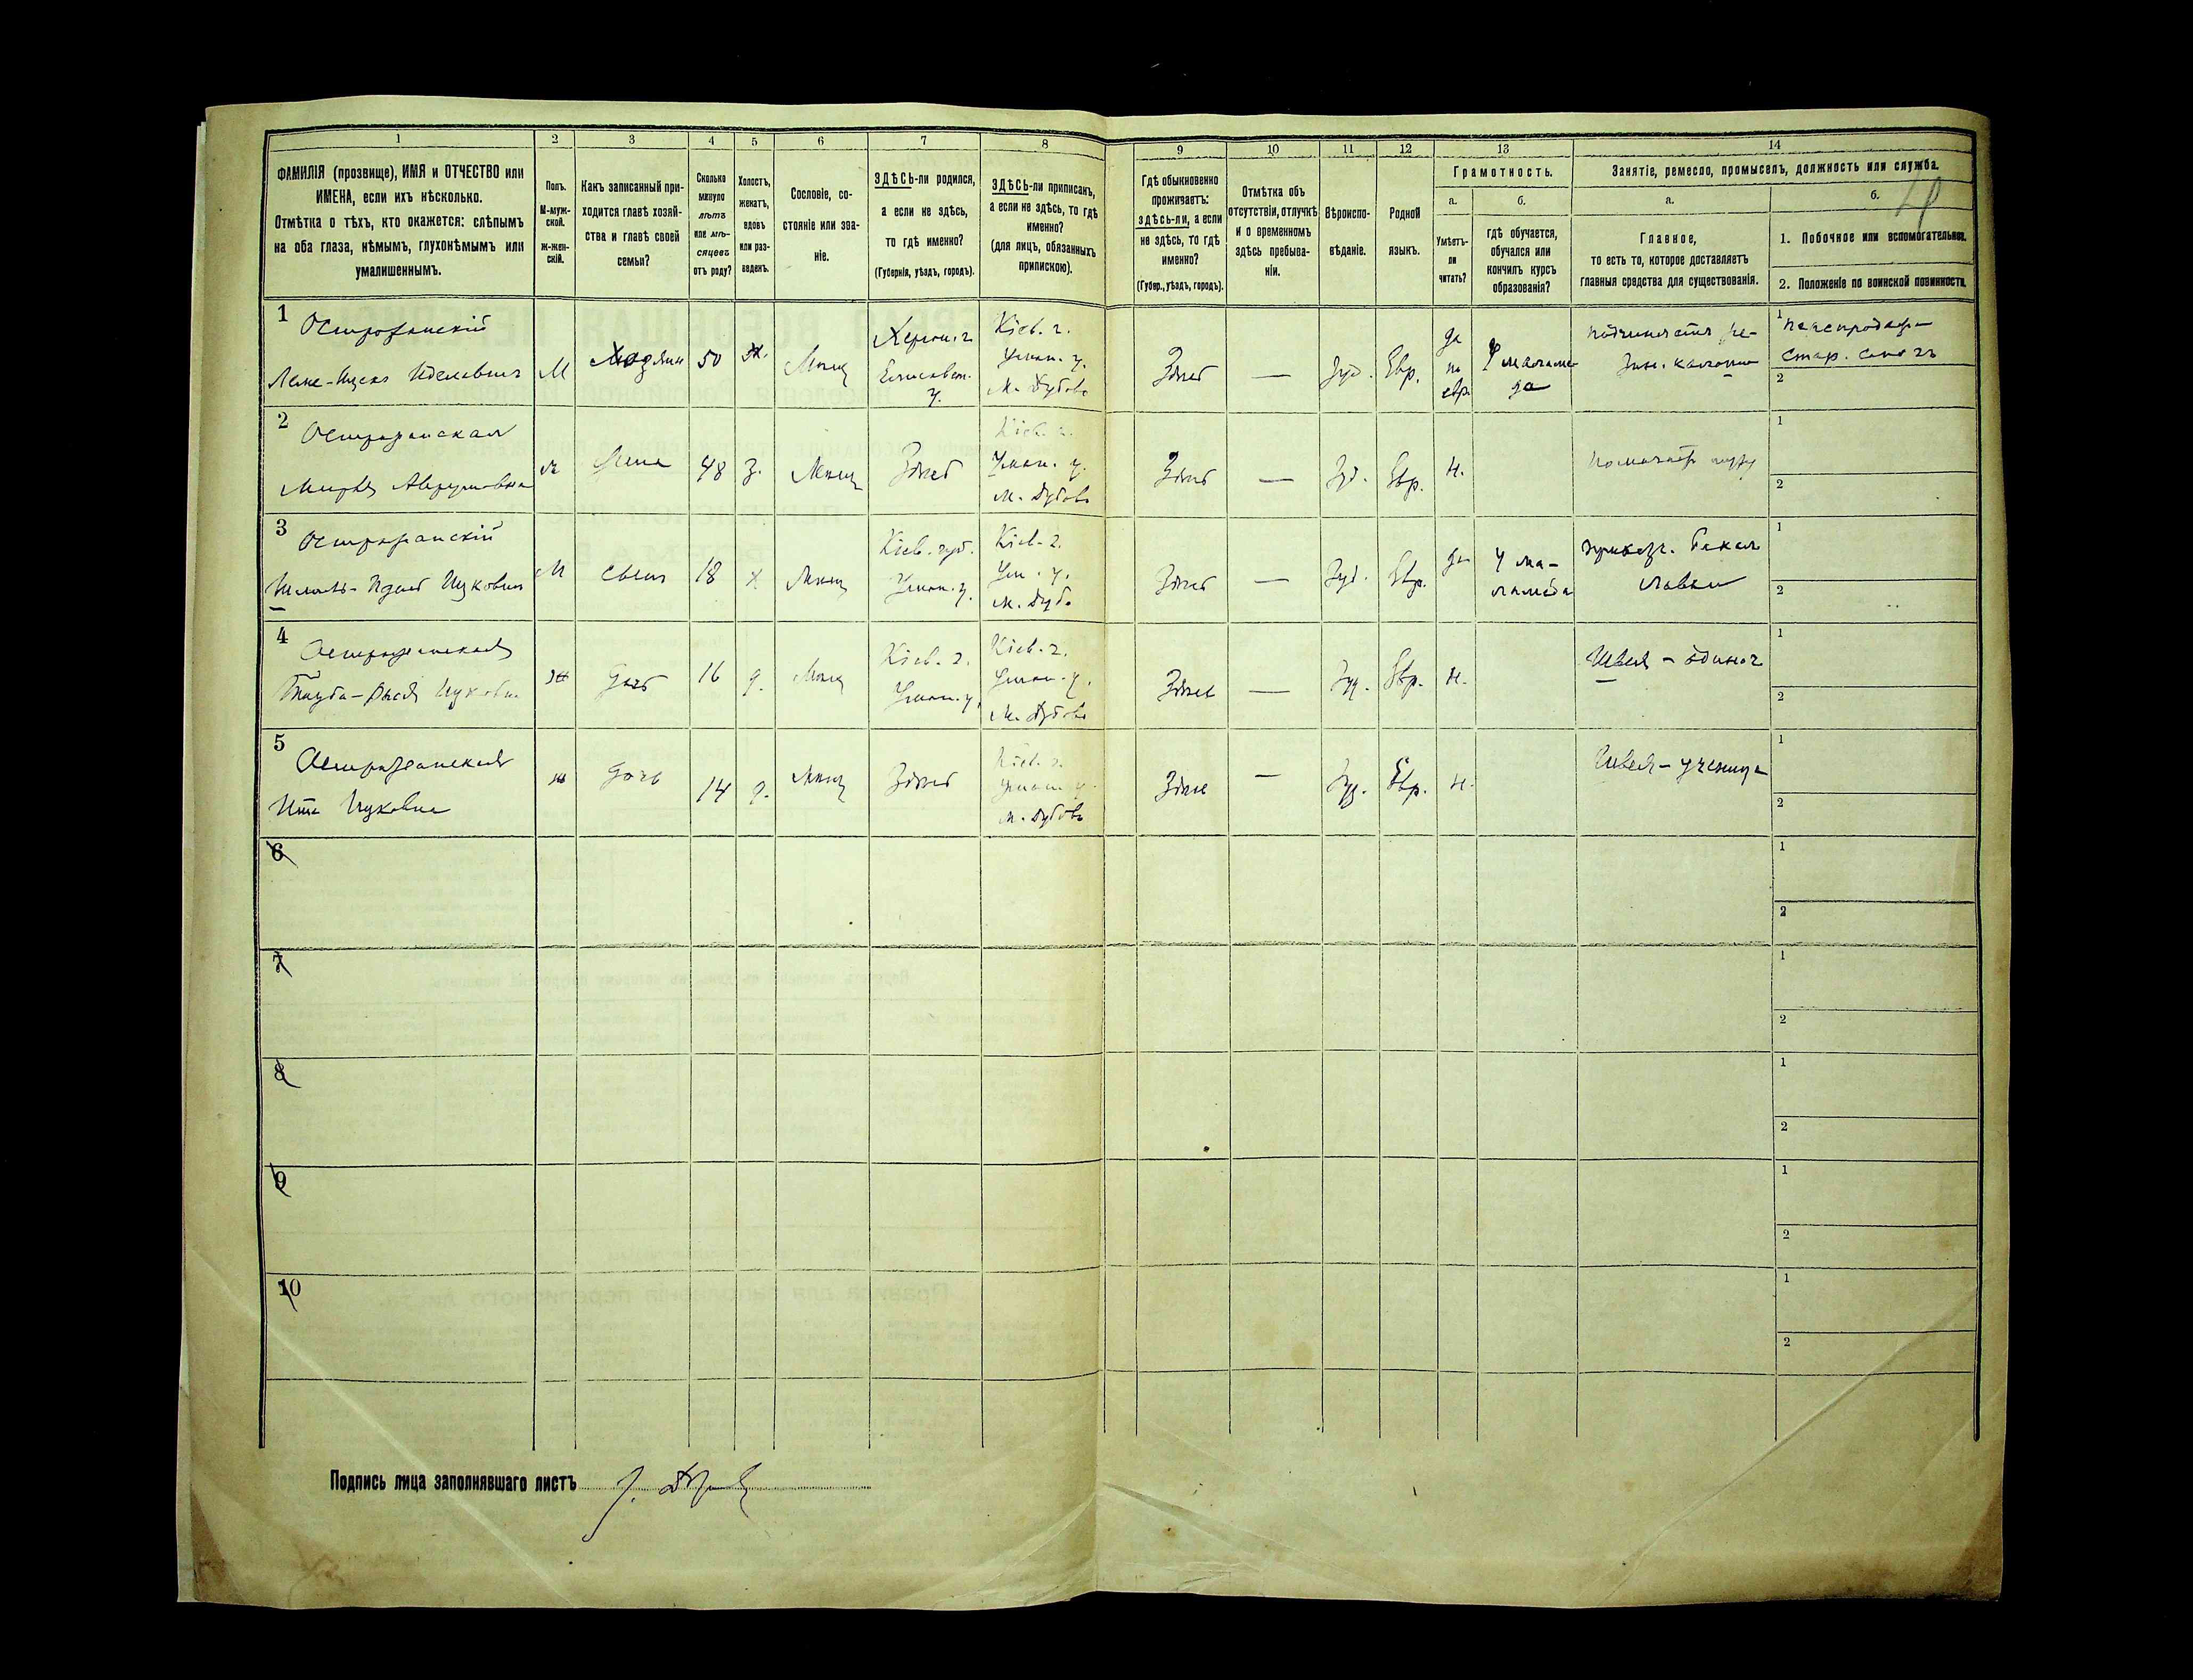 1
2
3
4
5
6
7
8
ФАМИЛІЯ (прозвище), ИМЯ и ОТЧЕСТВО или
ИМЕНА, если ихъ нѣсколько.
Отмѣтка о тѣхъ, кто окажется: слѣпымъ
на оба глаза, нѣмымъ, глухонѣмымъ или
умалишеннымъ.
Полъ.
М-муж-
ской.
Ж-жен-
скій.
Какъ записанный при-
ходится главѣ хозяй-
ства и главѣ своей
семьи?
Сколько
минуло
лѣтъ
или мѣ-
сяцевъ
отъ роду?
Холостъ,
женатъ,
вдовъ
или раз-
веденъ.
Сословіе, со-
стояніе или зва-
ніе.
ЗДѢСЬ-ли родился,
а если не здѣсь,
то гдѣ именно?
(Губернія, уѣздъ, городъ).
ЗДѢСЬ-ли приписанъ,
а если не здѣсь, то гдѣ
именно?
(для лицъ, обязанныхъ
припискою).
9
10
11
12
13
14
Гдѣ обыкновенно
проживаетъ:
здѣсь-ли, а если
не здѣсь, то гдѣ
именно?
(Губер., уѣздъ, городъ).
Отмѣтка объ
отсутствіи, отлучкѣ
и о временномъ
здѣсь пребыва-
ніи.
Вѣроиспо-
вѣданіе.
Родной
языкъ.
Грамотность.
а.
Умѣетъ-
ли
читать?
б.
гдѣ обучается,
обучался или
кончилъ курсъ
образованія?
Занятіе, ремесло, промыселъ, должность или служба.
а.
Главное,
то есть то, которое доставляетъ
главныя средства для существованія.
б.
1. Побочное или вспомогательное.
2. Положеніе по воинской повинности.
1
М
хозяин
50
Мѣщ
Херсон. г.
Елисавет.
у.
Кіев. г.
Уман. у.
М. Дубово
Здѣсь
—
Іуд.
Евр.
да
по
евр.
У меламе-
да
1
стар.
2
2
Жена
48
З.
Мѣщ
Здѣсь
Кіев. г.
Уман. у.
М. Дубово
Здѣсь
—
Іуд.
Евр.
н.
Помогает мужу
1
2
3
Ицковичъ
М
Сынъ
18
х
Мѣщ
Кіев. губ.
Уман. у.
Кіев. г.
Ум. у.
М. Дубо
Здѣсь
—
Іуд.
Евр.
да
У ме-
ламеда
приказч. бакал
лавки
1
2
4
Ицковна
Ж
Дочь
16
д.
Мѣщ
Кіев. г.
Уман. у.
Кіев. г.
Уман. у.
М. Дубово
Здѣсь
—
Іуд.
Евр.
н.
Швея - одиноч
1
2
5
Ита Ицковна
Ж
Дочь
14
д.
Мѣщ
Здѣсь
Кіев. г.
Уман. у.
М. Дубово
Здѣсь
—
Іуд.
Евр.
н.
Швея - ученица
1
2
6
1
2
7
1
2
8
1
2
9
1
2
10
1
2
Подпись лица заполнявшаго листъ